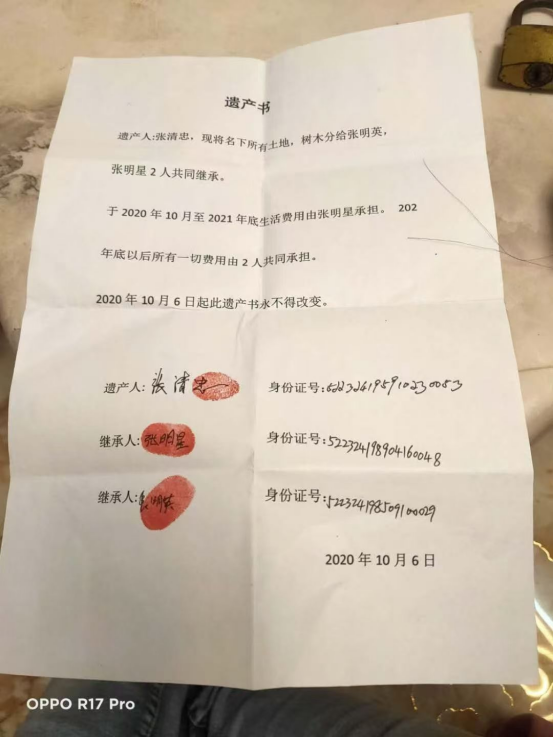 遗产书
遗产人:张清忠，现将名下所有土地，树木分给张明英，
张明星2人共同继承。
于2020年10月至2021年底生活费用由张明星承担。 202
年底以后所有一切费用由2人共同承担。
2020年10月6日起此遗产书永不得改变。
遗产人: 张清忠 身份证号:
继承人: 张明星 身份证号: 522324198904160048
继承人: 张明英 身份证号: 522324198509100029
2020年10月6日
OPPO R17 Pro